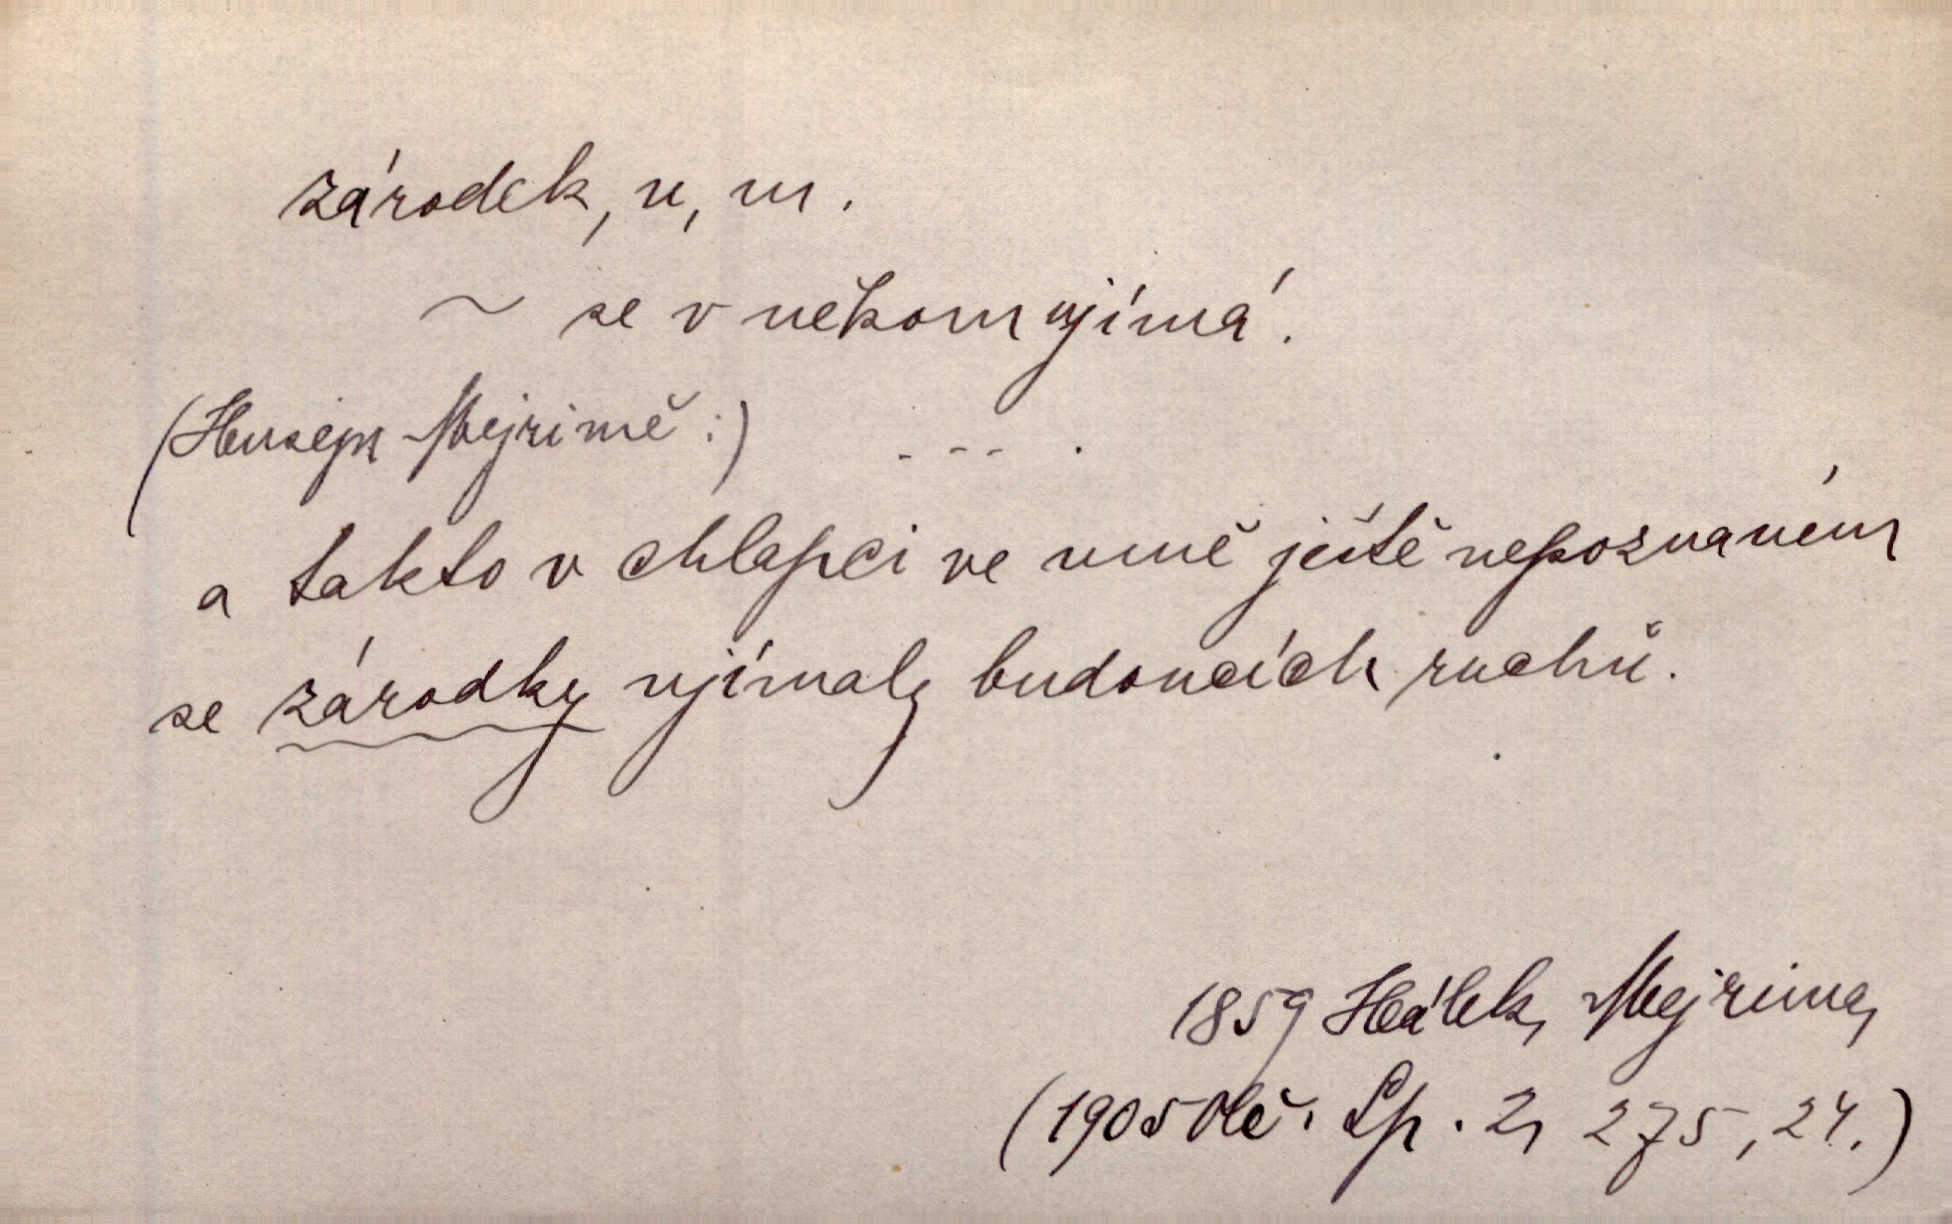 zárodek, u, m.
~ se v někom ujímá.
(Husejn Mejrimě:) - - - .
a takto v chlapci ve mně ještě nepoznaném
se zárodky ujímaly budoucích ruchů.
1859 Hálek, Mejrima,
(1905 Sp. 2, 275, 24.)